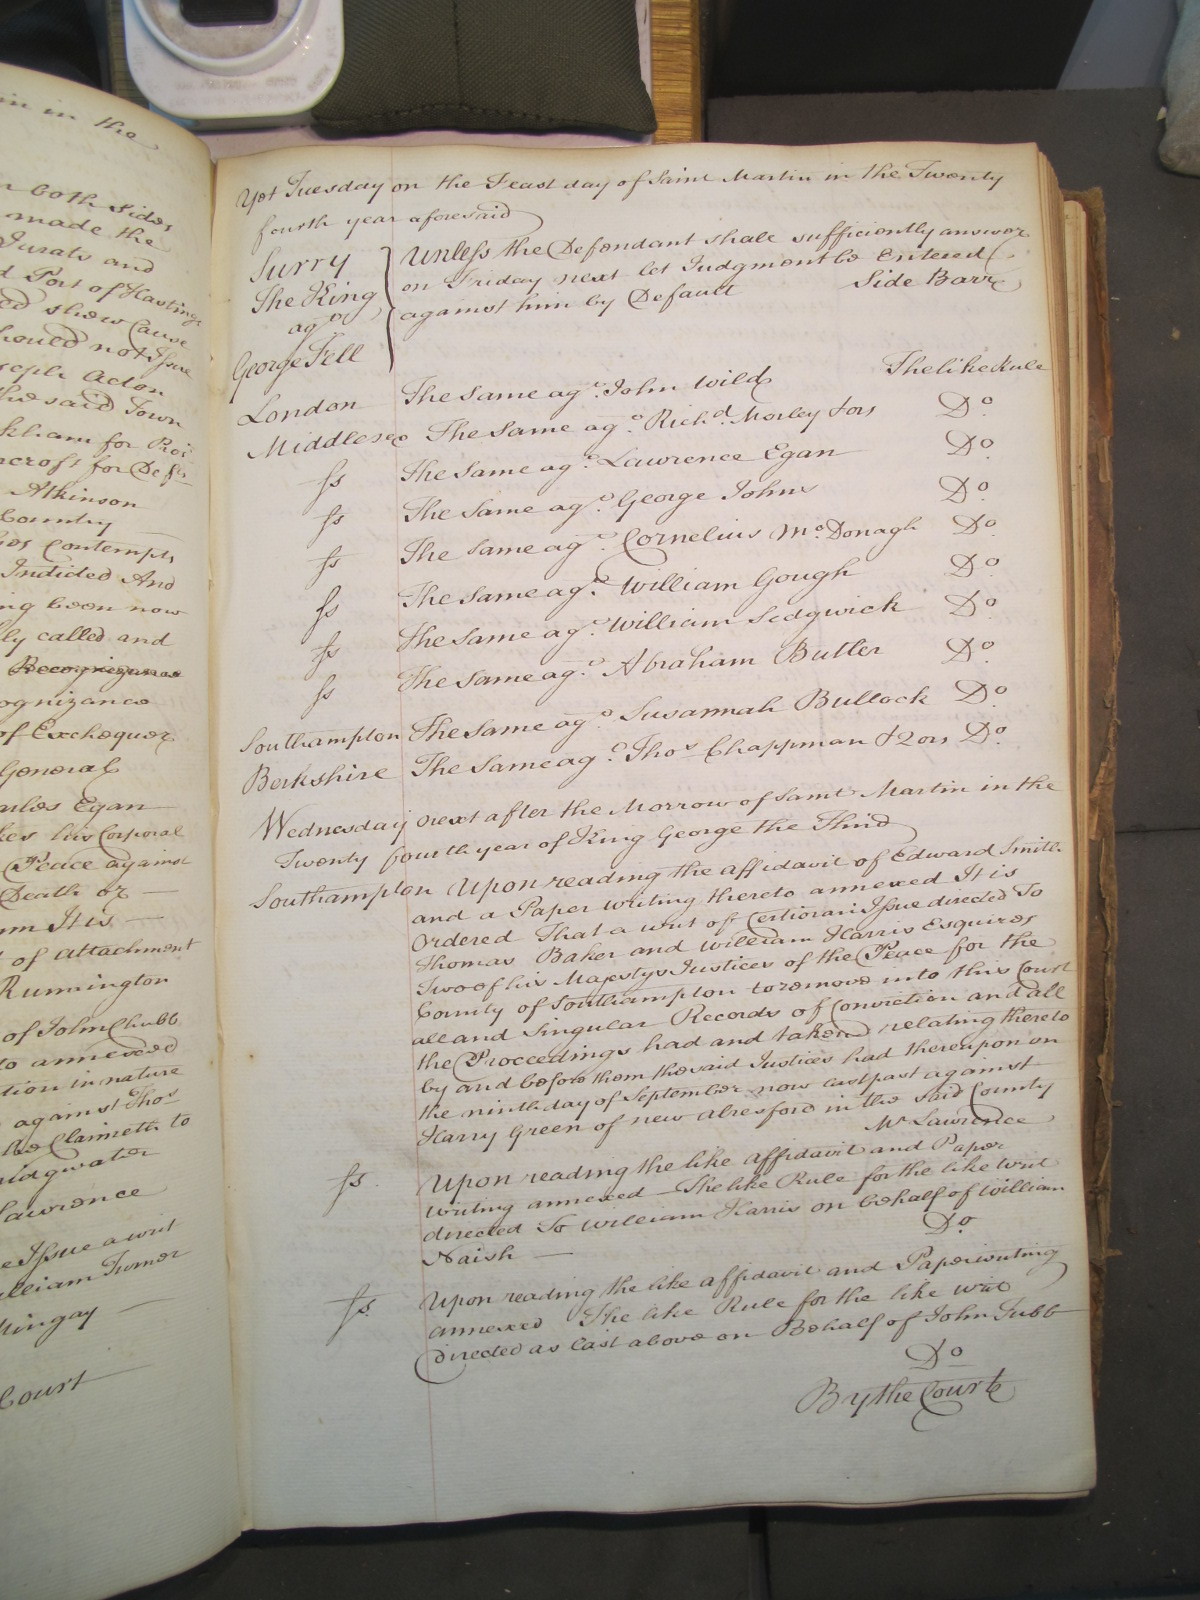 in in the
both sides
made the
Jurats and
d Port of Hastings
ed shew Cause
hould not Issue
seph Acton
the said Town
kham for Pros
ncroft for Defts
Atkinson
Country
Contempts
Indicted And
ng been now
ly called and
Recognizance
ognizance
of Exchequer
General
arles Egan
kes his Corporal
Peace against
Death or
m It is
of attachment
Runnington
of John Chubb
to annexed
tion in nature
against Thos
he Claimeth to
idgwater
Lawrence
e Issue a writ
illiam Turner
Mingay
Court
Yet Tuesday on the Feast day of Saint Martin in the Twenty
fourth year aforesaid
Surry
The King
agt
George Fell
Unless the Defendant shall sufficiently answer
on Friday next let Judgment be Entered
against him by Default Side Barr
London The Same agt. John Wild The like Rule
Middlesex The Same agt. Richd. Morley & ors Do.
ss The Same agt. Lawrence Egan Do.
ss The Same agt. George Johns Do.
ss The Same agt. Cornelius McDonagh Do.
ss The Same agt. William Gough Do.
ss The Same agt. William Sedgwick Do.
ss The Same agt. Abraham Butler Do.
Southampton The Same agt. Susannah Bullock Do.
Berkshire The Same agt. Thos Chappman & 2 ors Do.
Wednesday next after the Morrow of Saint Martin in the
Twenty fourth year of King George the Third
Southampton Upon reading the affidavit of Edward Smith
and a Paper writing thereto annexed It is
Ordered That a writ of Certiorari Issue directed To
Thomas Baker and William Harris Esquires
Two of his Majestys Justices of the Peace for the
County of Southampton to remove into this Court
all and Singular Records of Conviction and all
the Proceedings had and taken relating thereto
by and before them the said Justices had thereupon on
the ninth day of September now last past against
Harry Green of new Alresford in the said County
Mr Lawrence
ss Upon reading the like affidavit and Paper
writing annexed The like Rule for the like writ
directed To William Harris on behalf of William
Naish Do
ss Upon reading the like affidavit and Paper writing
annexed The like Rule for the like writ
directed as last above on Behalf of John Tubb
Do
By the Court